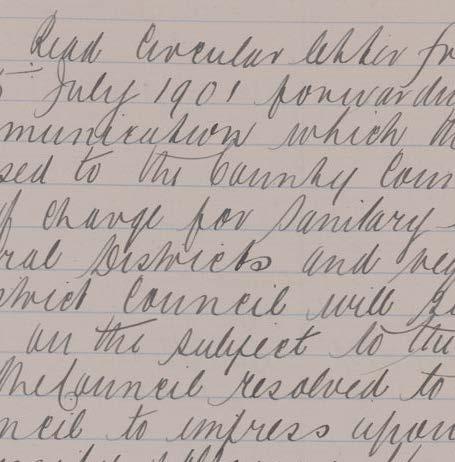 Read Circular letter fr
5th July 1901 forwardin
munication which th
sed to the County Coun
of charge for Sanitary
ral Districts and req
strict Council will
on the subject to the
The Council resolved to
ncil to impress upon